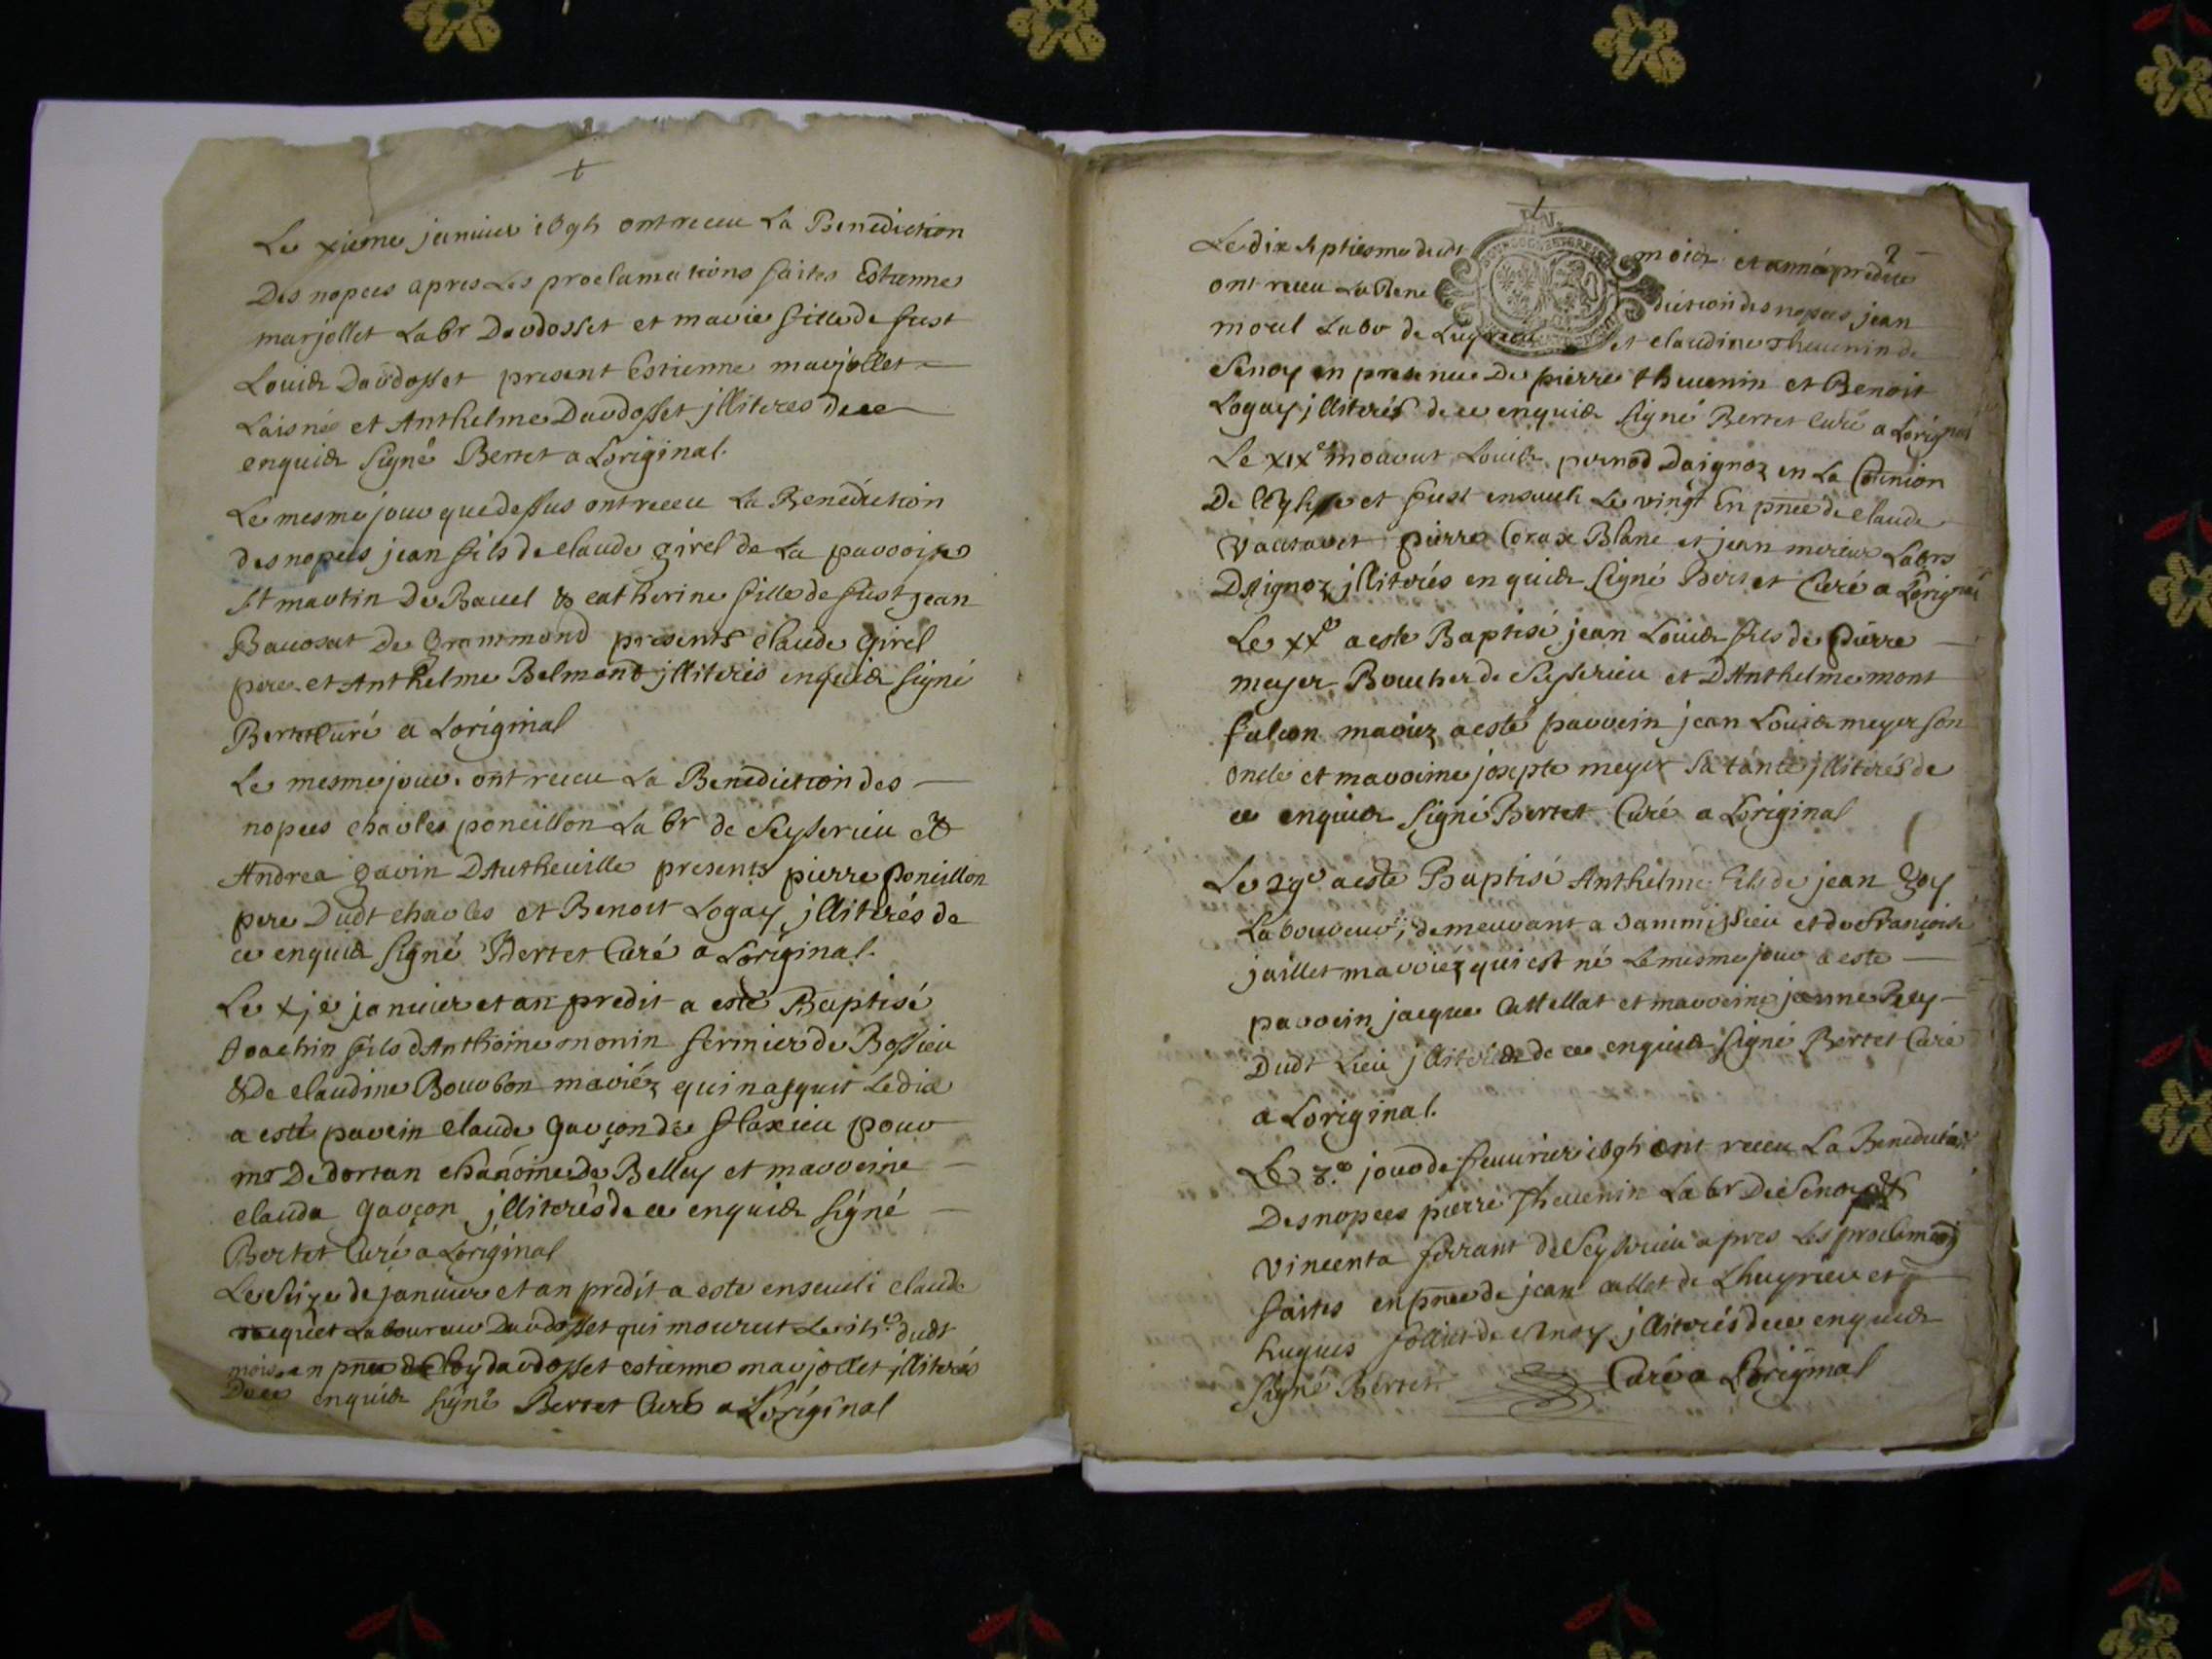 Le xieme janvier 1695 ont receu La Benediction
Des nopces apres Les proclamations faites Estienne
marjollet Labr Dardosset et marie fille de fust
Louis Dardosset present Estienne marjollet
Laisné et Anthelme Dardosset jlliteres de ce
enquis signé Bertet a Loriginal.
Le mesme jour que dessus ont receu La Benediction
des nopces jean fils de claude girel de La parroisse
st martin De Bavel & catherine fille de fust jean
De Grammond presents claude girel
pere et Anthelme Belmond jlliterés enquis signé
Bertet curé a Loriginal
Le mesme jour ont receu La Benediction des
nopces charles poncillon Labr de Seyserieu et
Andrea gavin DArtheville presents pierre Poncillon
pere Dudt charles et Benoit Logay jlliterés de
ce enquis signé Bertet Curé a Loriginal.
Le xje janvier et an predit a esté Baptisé
Joachin fils dAnthoine monin fermier de Bossieu
& de claudine Bourbon mariéz qui nasquit Le dix
a esté parein claude garçon de flaxieu pour
mr De dortan chanoine de Belley et marreine
clauda garçon jlliterés de ce enquis signé
Bertet Curé a Loriginal
Le Seize de janvier et an predit a este enseveli claude
Laboureur Dardosset qui mourut Le 15e dudt
mois en pnce de Cloy dardosset estienne marjollet jlliterés
De ce enquis signé Bertet Curé a Loriginal
Le dix septiesme dudt mois et année predite 2
ont receu La Bene diction des nopces jean
morel Labr de et claudine Thevenin de
Senoy en presence De pierre thevenin et Benoit
Logay jlliterés de ce enquis signé Bertet Curé a Loriginal
Le xixe mourut Louis pernod Daignoz en La Comunion
De lEglise et fust enseveli Le vingt En pnce de claude
pierre Blanc et jean mercier Labrs
DAignoz jlliterés enquis signé Bertet Curé a Loriginal
Le xxe a este Baptisé jean Louis fils de pierre
meyer Boucher de Seyserieu et DAnthelme mont
falcon mariez a esté parrein jean Louis meyer son
oncle et marreine josepte meyer sa tante jlliterés de
ce enquis signé Bertet Curé a Loriginal
Le 29e a este Baptisé Anthelme fils de jean Goy
Laboureur, demeurant a Sammissieu et de françoise
juillet marriéz qui est né Le mesme jour a este
parrein jacque Cattellat et marreine jeanne Rey
Dudt Lieu jlliterés de ce enquis signé Bertet Curé
a Loriginal.
Le 3e jour de fevvrier 1695 ont receu La Benediction
Des nopces pierre Thevenin Labr De Senoy et
vincenta ferrant de Seyserieu apres Les proclamaons
faites en pnce de jean callet de Lhuyrieu et
hugues follict de Senoy jlliterés de ce enquis
signé Bertet Curé a Loriginal